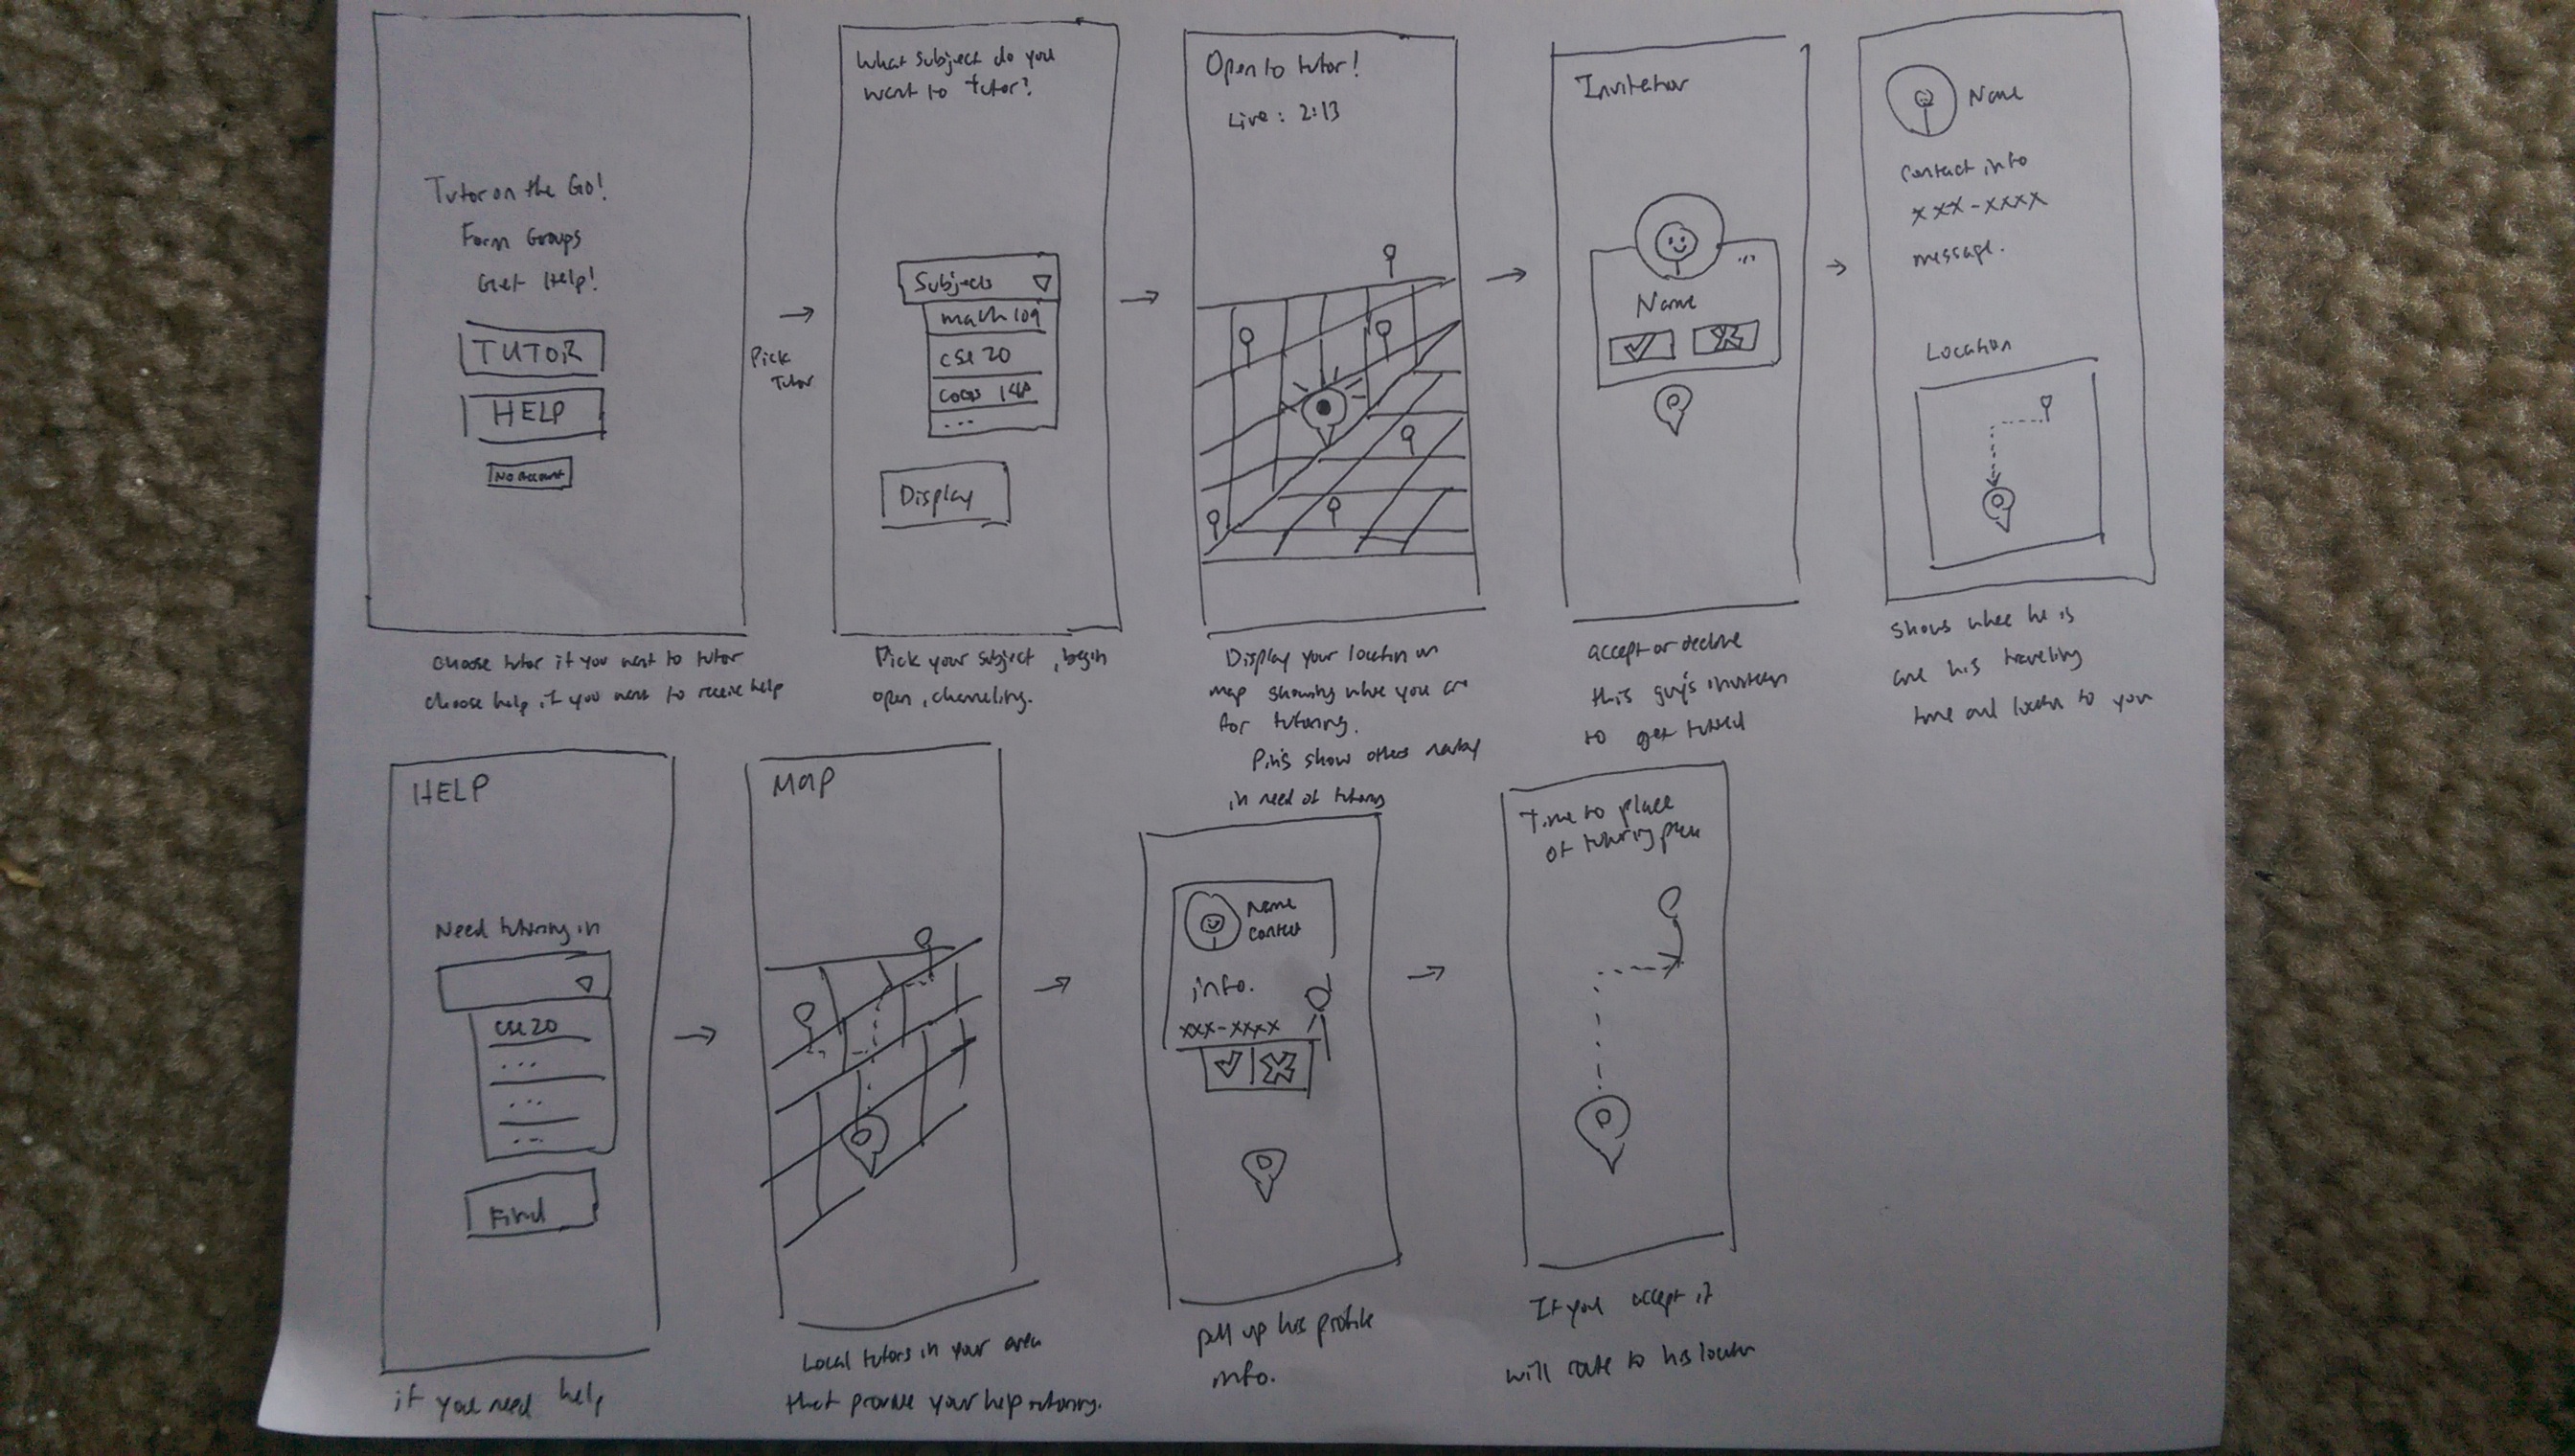 Tutor on the Go!
Form Groups
Get Help!
TUTOR
HELP
No account
Pick
Tutor
choose tutor if you want to tutor
choose help, if you want to receive help
What subject do you
want to tutor?
Subjects
math 109
cse 20
cogs
...
Display
Pick your subject, begin
open, channeling.
Open to tutor!
Live: 2:13
Display your location on
map showing where you are
for tutoring.
Pins show others nearby
in need of tutoring
Invitation
Name
accept or decline
this guy's invitation
to get tutored
Name
contact info
xxx-xxxx
message.
Location
shows where he is
and his traveling
time and location to you
HELP
Need tutoring in
cse 20
...
...
...
Find
if you need help
MAP
Local tutors in your area
that provide your help tutoring.
Name
contact
info.
xxx-xxxx
pull up his profile
info.
Time to place
of tutoring place
If you accept it
will route to his location